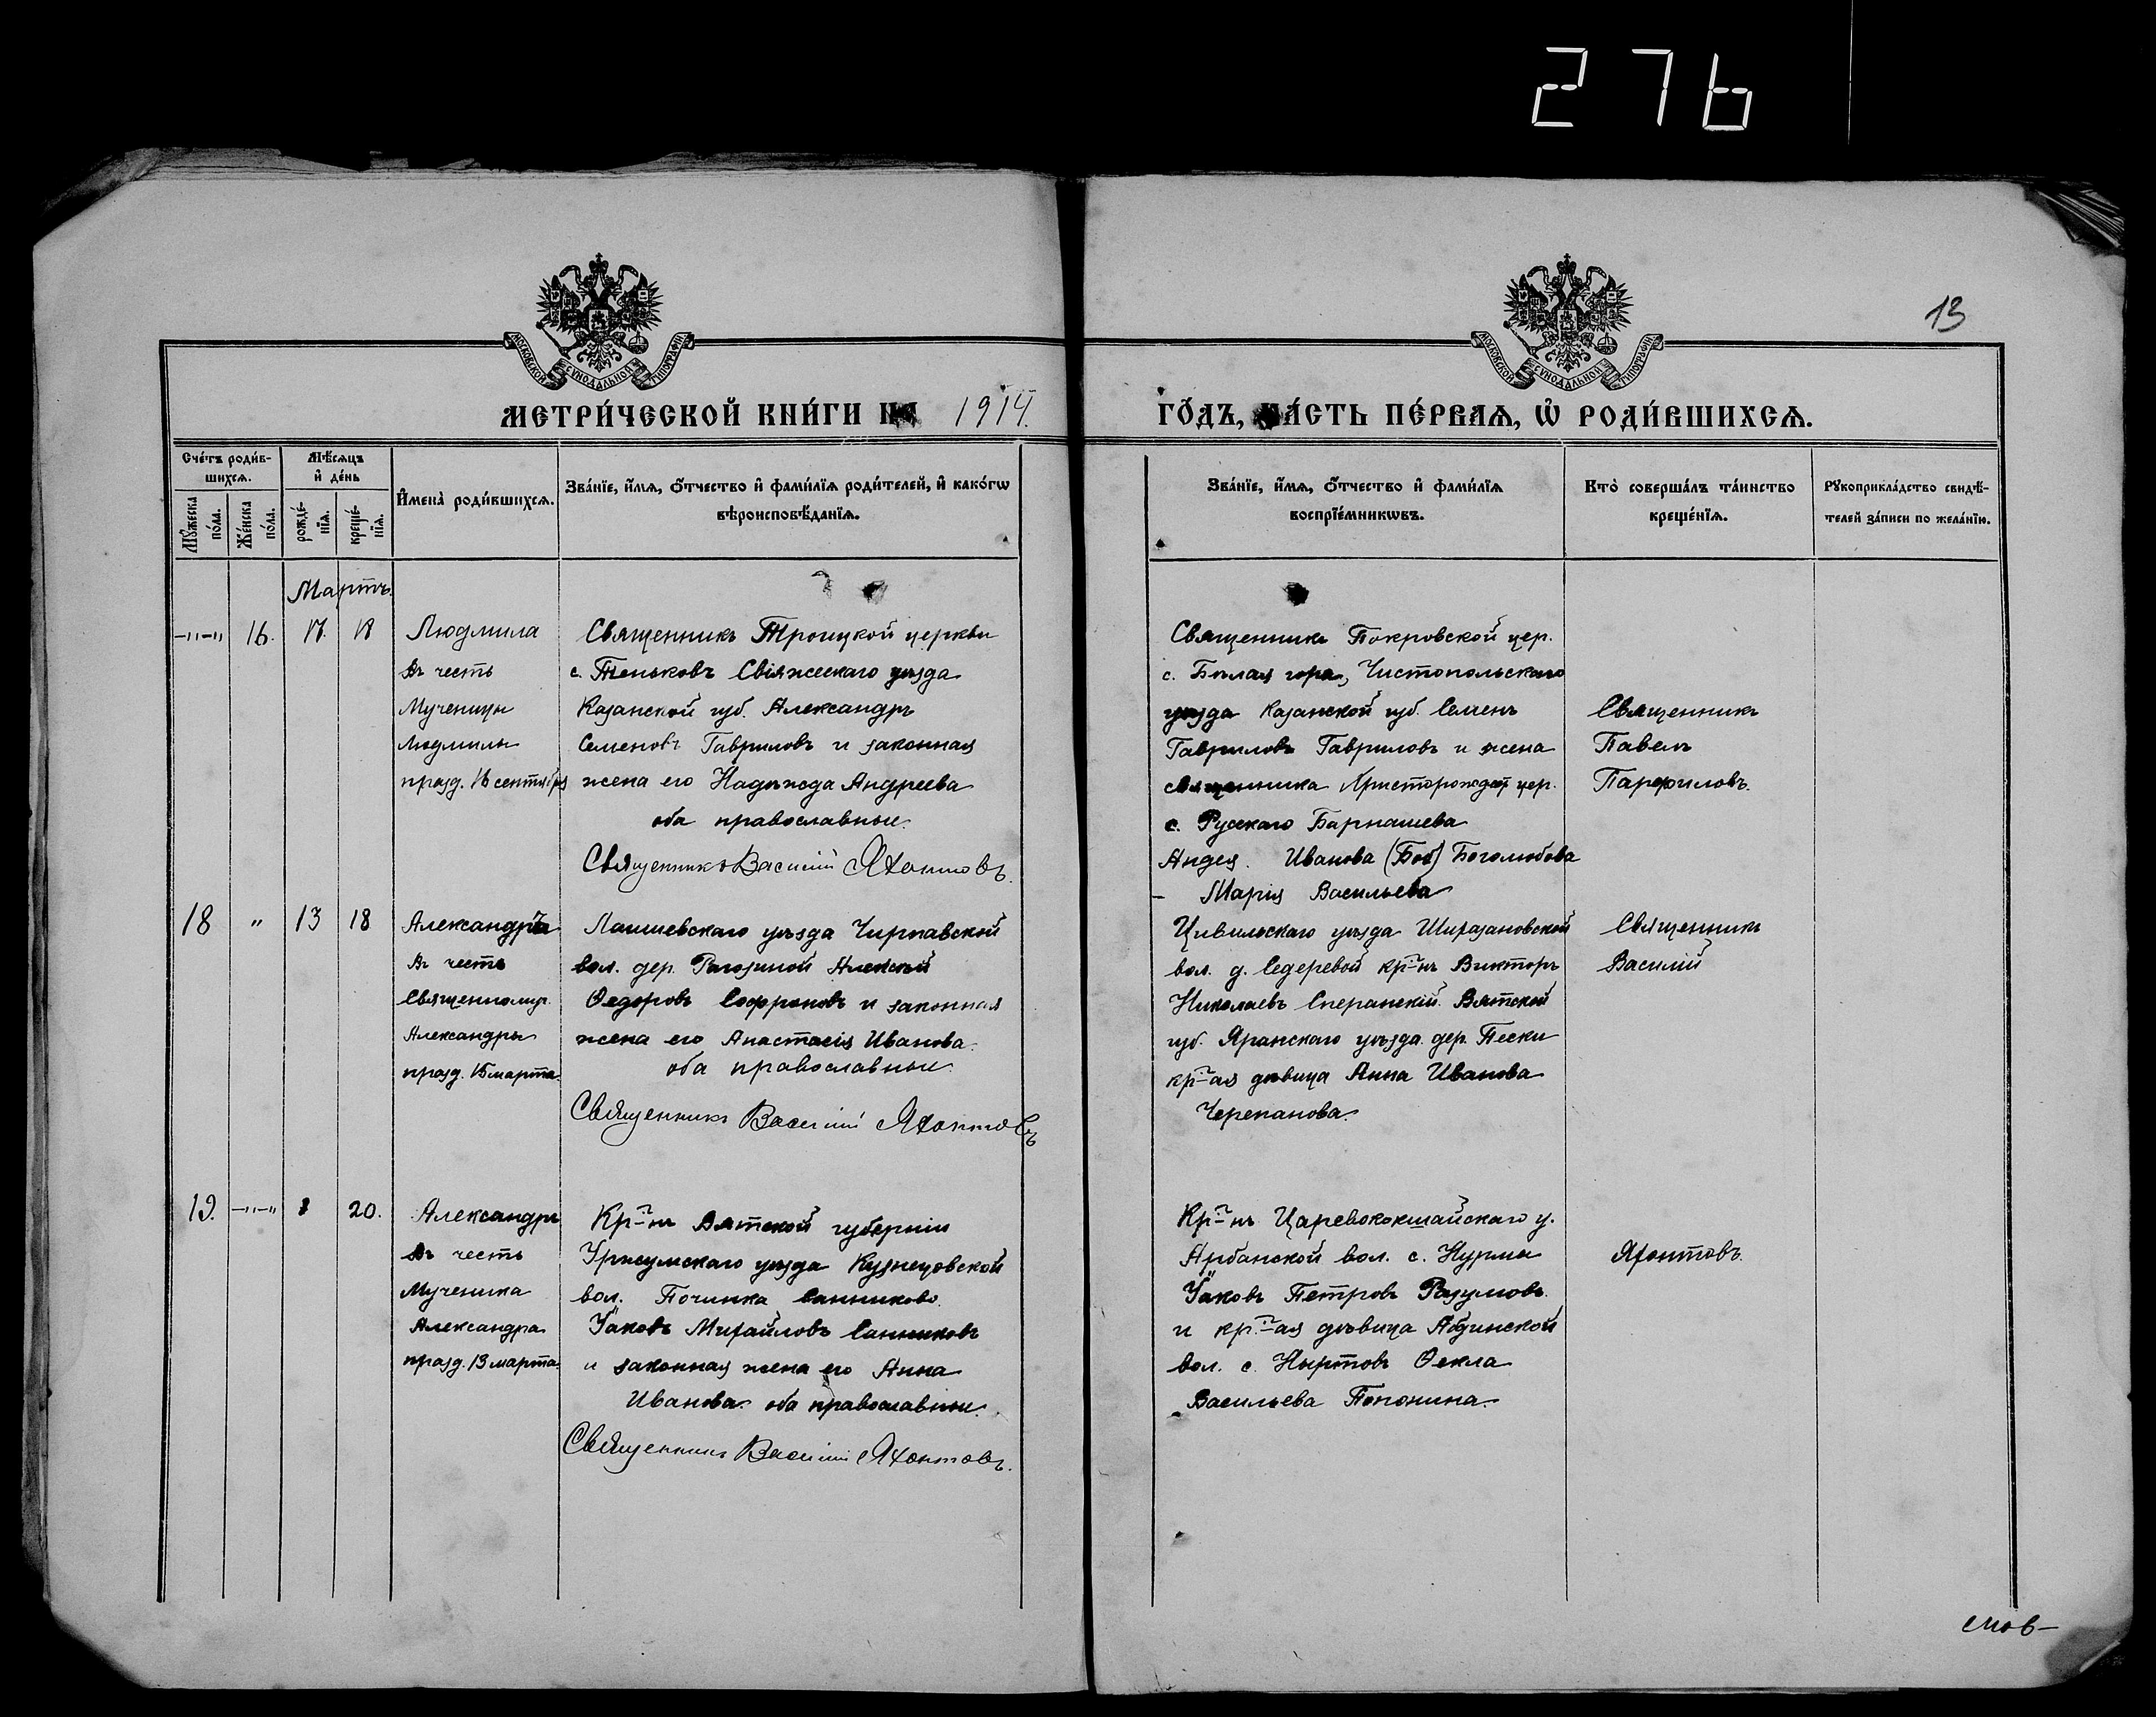 276
13
МОСКОВСКОЙ СѴНОДАЛЬНОЙ ТИПОГРАФІИ
МОСКОВСКОЙ СѴНОДАЛЬНОЙ ТИПОГРАФІИ
МЕТРИ́ЧЕСКОЙ КНИ́ГИ НА 1914.
ГО́ДЪ, ЧА́СТЬ ПЕ́РВАѦ, Ѡ҆ РОДИ́ВШИХСѦ.
Сче́тъ роди́в-
шихсѧ.
Мꙋ́жеска по́ла.
Же́нска по́ла.
Мѣ́сѧцъ
и҆ де́нь
рожде́-
нїѧ.
креще́-
нїѧ.
И҆мена̀ роди́вшихсѧ.
Зва́нїе, и҆́мѧ, ѻ҆́тчество и҆ фами́лїѧ роди́телей, и҆ како́гѡ
вѣроисповѣ́данїѧ.
Зва́нїе, и҆́мѧ, ѻ҆́тчество и҆ фами́лїѧ
воспрїе́мникѡвъ.
Кто̀ соверша́лъ та́инство
креще́нїѧ.
Рꙋкоприкла́дство свидѣ́-
телей за́писи по жела́нїю.
Мартъ.
-"-" 16. 17. 18
Людмила
въ честь
Мученицы
Людмилы
празд. 16 сентября
Священникъ Троицкой церкви
с. Теньковъ Свіяжскаго уѣзда
Казанской губ. Александръ
Семеновъ Гавриловъ и законная
жена его Надежда Андреева
оба православные.
Священникъ Василій Яхонтовъ.
Священникъ Покровской цер.
с. Бѣлая гора, Чистопольскаго
уѣзда Казанской губ. Семенъ
Гавриловъ Гавриловъ и жена
священника Христорождест цер.
с. Русскаго Барнашева
Андея. Иванова (Бог) Боголюбова
- Марія Васильева
Священникъ
Павелъ
Парфиловъ.
18 " 13 18
Александръ
въ честь
Священномуч.
Александры
празд. 15 марта.
Лаишевскаго уѣзда Чирпавской
вол. дер. Рагозиной Алексѣй
Ѳедоровъ Софроновъ и законная
жена его Анастасія Иванова.
оба православные.
Священникъ Василій Яхонтовъ
Цивильскаго уѣзда Ширазановской
вол. д. Седеревой кр-нъ Викторъ
Николаевъ Сперанскій. Вятской
губ. Яранскаго уѣзда дер. Пески
кр-ая дѣвица Анна Иванова
Черепанова.
Священникъ
Василій
19. -"-" 20.
Александръ
въ честь
Мученика
Александра
празд. 13 марта.
Кр-нъ Вятской губерніи
Уржумскаго уѣзда Кузнецовской
вол. Починка Санниково.
Іаковъ Михайловъ Санниковъ
и законная жена его Анна
Иванова. оба православные.
Священникъ Василій Яхонтовъ.
Кр-нъ Царевококшайскаго у.
Арбанской вол. с. Нурма
Іаковъ Петровъ Разумовъ.
и кр-ая дѣвица Абдинской
вол. с. Ныртовъ Ѳекла
Васильева Попонина.
Яхонтовъ.